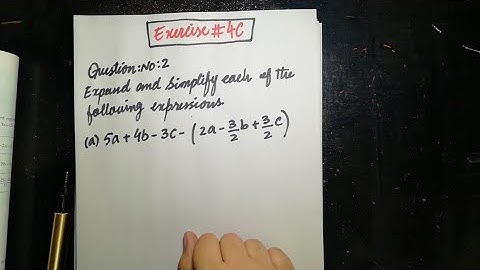 Exercise #4C
Question:No:2
Expand and Simplify each of the
following expressions
(a) 5a + 4b - 3c - (2a - 3/2 b + 3/2 c)